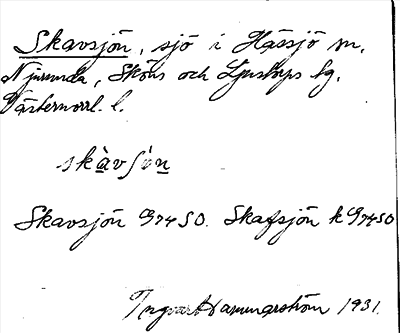 Skavsjön, sjö i Hässjö sn,
Njurunda, Sköns och Ljustorps tg,
Västernorrl. l.
skavsjön
Skavsjön G74SO. Skafsjön k G74SO
Ingvar Hammarström 1931.